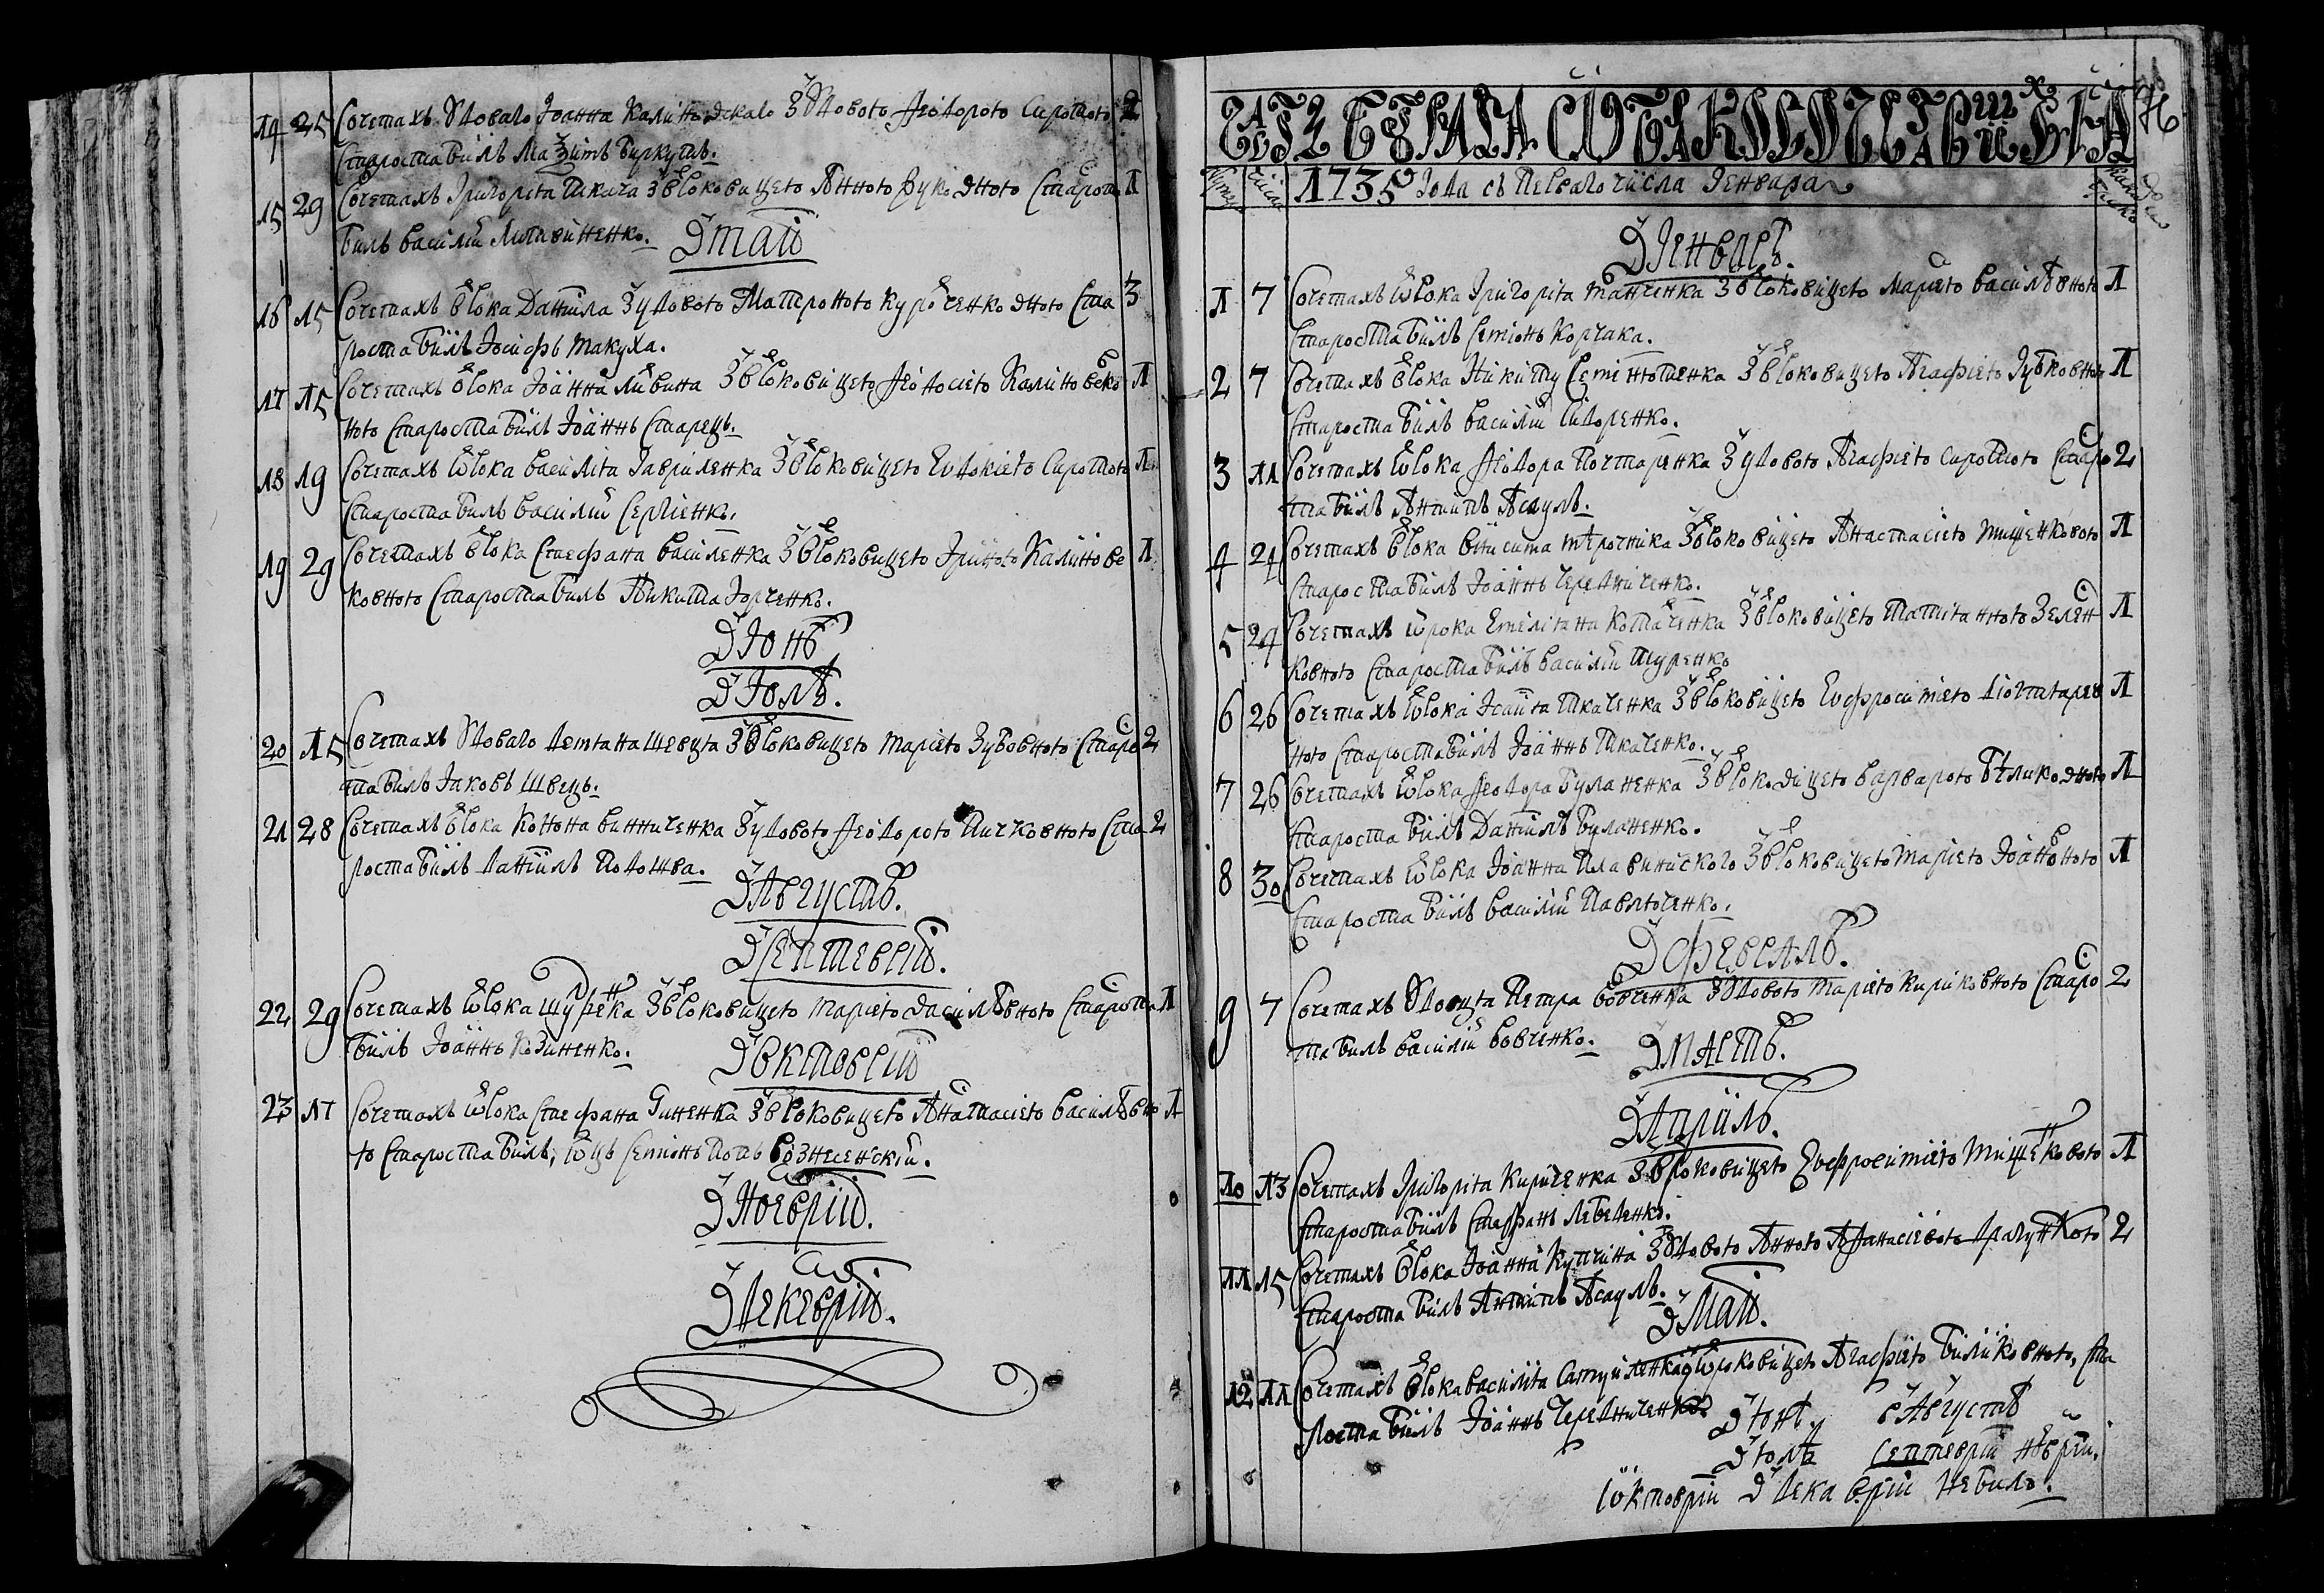 14 25 Сочетахъ вдоваго Іоанна Калиновскаго з вдовою Ѳеодорою Сиротою 2
Староста билъ Мазимъ Биркутъ.
15 29 Сочетахъ Григорія Ткача з отроковицею Анною Вуковною Старос 1
билъ Василій Литвиненко.
В Маи
16 15 Сочетахъ отрока Даніила з удовою Матроною Курченковною Ста 3
роста билъ Іосифъ Макуха.
17 15 Сочетахъ отрока Іоанна Ливина з отроковицею Ѳеодосіею Калиновско 1
ною Староста билъ Іоаннъ Старецъ.
18 19 Сочетахъ отрока Василія Гавриленка з отроковицею Евдокіею Сиротою 1
Староста билъ Василій Сергіенко.
19 29 Сочетахъ отрока Стефана Василенка з отроковицею Іриною Калинове 1
ковною Староста билъ Никита Горченко.
В Юнъ
В Юлъ.
20 15 Сочетахъ вдоваго Демяна Шевця з отроковицею Маріею Зубовною Старо 2
та билъ Іаковъ Швецъ.
21 28 Сочетахъ отрока Конона Винниченка з удовою Ѳеодорою Пичковною Ста 2
роста билъ Даніилъ Подошва.
В Августъ.
В Септеврій.
22 29 Сочетахъ отрока з отроковицею Маріею Василѣвною Староста 1
билъ Іоаннъ Козиненко.
В Октоврій
23 17 Сочетахъ отрока Стефана Гиненка з отроковицею Анастасіею Василѣвно 1
ю Староста билъ, отцъ Семіонъ попъ Вознесенскій.
В Ноеврій.
В Декеврій.
1735 Года съ Перваго числа Генвара
В Іенваръ.
1 7 Сочетахъ отрока Григорія Манченка з отроковицею Маріею Василѣвною 1
Староста билъ Семіонъ Корчака.
2 7 Сочетахъ отрока Никиту Семіноменка з отроковицею Агафіею Зубковною 1
Староста билъ Василій Сидоренко.
3 11 Сочетахъ отрока Ѳеодора Почтаренка з удовою Агафіею Сиротою Старо 2
та билъ Антипъ Асаулъ.
4 24 Сочетахъ отрока Внисима Мѣрочника з отроковицею Анастасіею Тищенковою 1
Староста билъ Іоаннъ Чередниченко.
5 24 Сочетахъ отрока Емеліяна Костченка з отроковицею Татіянною Зелен 1
ковною Староста билъ Василій Туренко
6 26 Сочетахъ отрока Ісаія Ткаченка з отроковицею Евфросиніею 1
ною Староста билъ Іоаннъ Ткаченко.
7 26 Сочетахъ отрока Ѳеодора Буланенка з отроковицею Варварою Бѣликовною 1
Староста билъ Даніилъ Буланенко.
8 30 Сочетахъ отрока Іоанна Плавинского з отроковицею Маріею Іоановною 1
Староста билъ Василій Паволоченко.
В Февралъ.
9 7 Сочетахъ вдовця Петра Вовченка з вдовою Маріею Кириковною Старо 2
та билъ Василій Вовченко.
В Мартъ.
В Априлъ.
10 13 Сочетахъ Григорія Кириченка з отроковицею Евфросиніею Тищенковою 1
Староста билъ Стефанъ Лебеденко.
11 15 Сочетахъ отрока Іоанна Купчина з вдовою Анною Афанасіевою Драгункою 2
Староста билъ Антипъ Асаулъ.
В Маи.
12 11 Сочетахъ отрока Василія Самуиленка з отроковицею Агафіею Биликовною, Ста
роста билъ Іоаннъ Чередниченко
В Юнъ, в Августъ
В Юлъ Септеврій Ноеврій.
Октоврій в Декаврій небило.